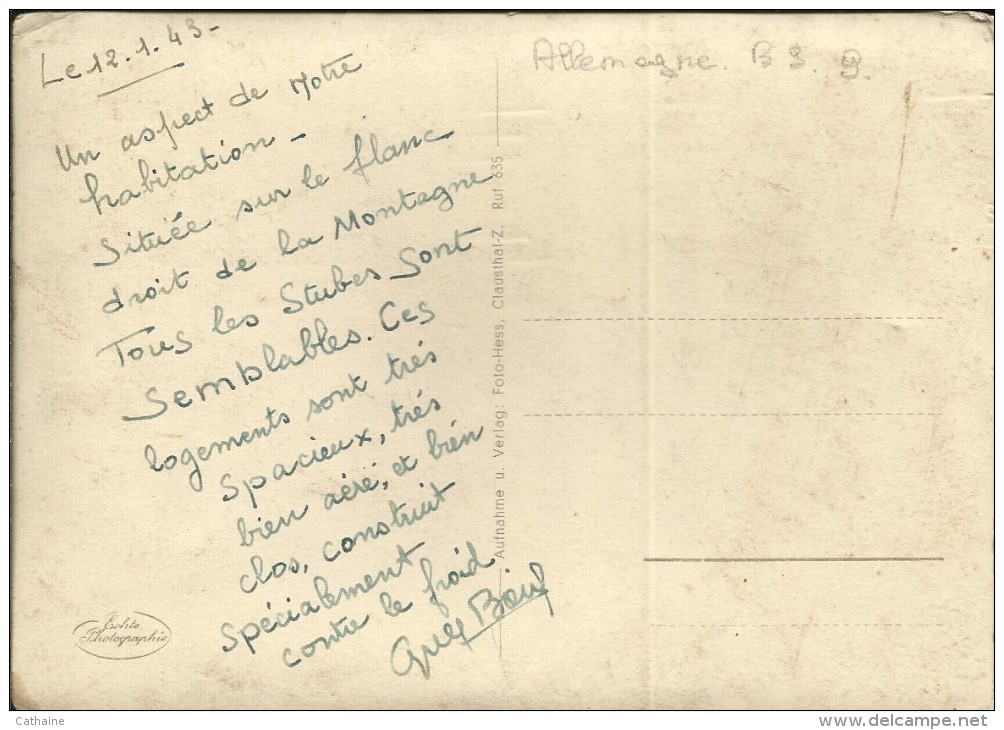 Le 12.1.43-
Un aspect de Notre
habitation -
Située sur le flanc
droit de la Montagne
Tous les Stubes Sont
Semblables. Ces
logements sont très
Spacieux, très
bien aéré, et bién
clos, construit
spécialement
contre le froid.
Bœuf
Allemagne. B S. 9.
Aufnahme u. Verlag: Foto-Hess, Clausthal-Z. Ruf 635
Echte
Photographie
Cathaine
www.delcampe.net